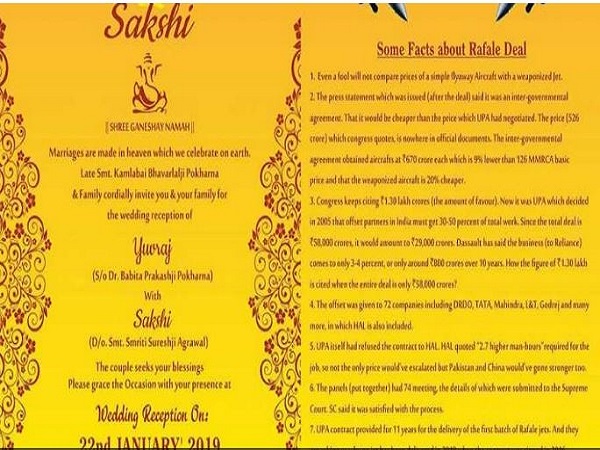 Sakshi
|| SHREE GANESHAY NAMAH ||
Marriages are made in heaven which we celebrate on earth.
Late Smt. Kamlabai Bhavarlalji Pokharna
& Family cordially invite you & your family for
the wedding reception of
Yuvraj
(S/o Dr. Babita Prakashji Pokharna)
With
Sakshi
(D/o. Smt. Smriti Sureshji Agrawal)
The couple seeks your blessings
Please grace the Occasion with your presence at
Wedding Reception On:
22nd JANUARY' 2019
Some Facts about Rafale Deal
1. Even a fool will not compare prices of a simple flyaway Aircraft with a weaponized Jet.
2. The press statement which was issued (after the deal) said it was an inter-governmental
agreement. That it would be cheaper than the price which UPA had negotiated. The price (526
crore) which congress quotes, is nowhere in official documents. The inter-governmental
agreement obtained aircrafts at ₹670 crore each which is 9% lower than 126 MMRCA basic
price and that the weaponized aircraft is 20% cheaper.
3. Congress keeps citing ₹1.30 lakh crores (the amount of favour). Now it was UPA which decided
in 2005 that offset partners in India must get 30-50 percent of total work. Since the total deal is
₹58,000 crores, it would amount to ₹29,000 crores. Dassault has said the business (to Reliance)
comes to only 3-4 percent, or only around ₹800 crores over 10 years. How the figure of ₹1.30 lakh
is cited when the entire deal is only ₹58,000 crores?
4. The offset was given to 72 companies including DRDO, TATA, Mahindra, L&T, Godrej and many
more, in which HAL is also included.
5. UPA itself had refused the contract to HAL. HAL quoted "2.7 higher man-hours" required for the
job, so not the only price would've escalated but Pakistan and China would've gone stronger too.
6. The panels (put together) had 74 meeting, the details of which were submitted to the Supreme
Court. SC said it was satisfied with the process.
7. UPA contract provided for 11 years for the delivery of the first batch of Rafale jets. And they